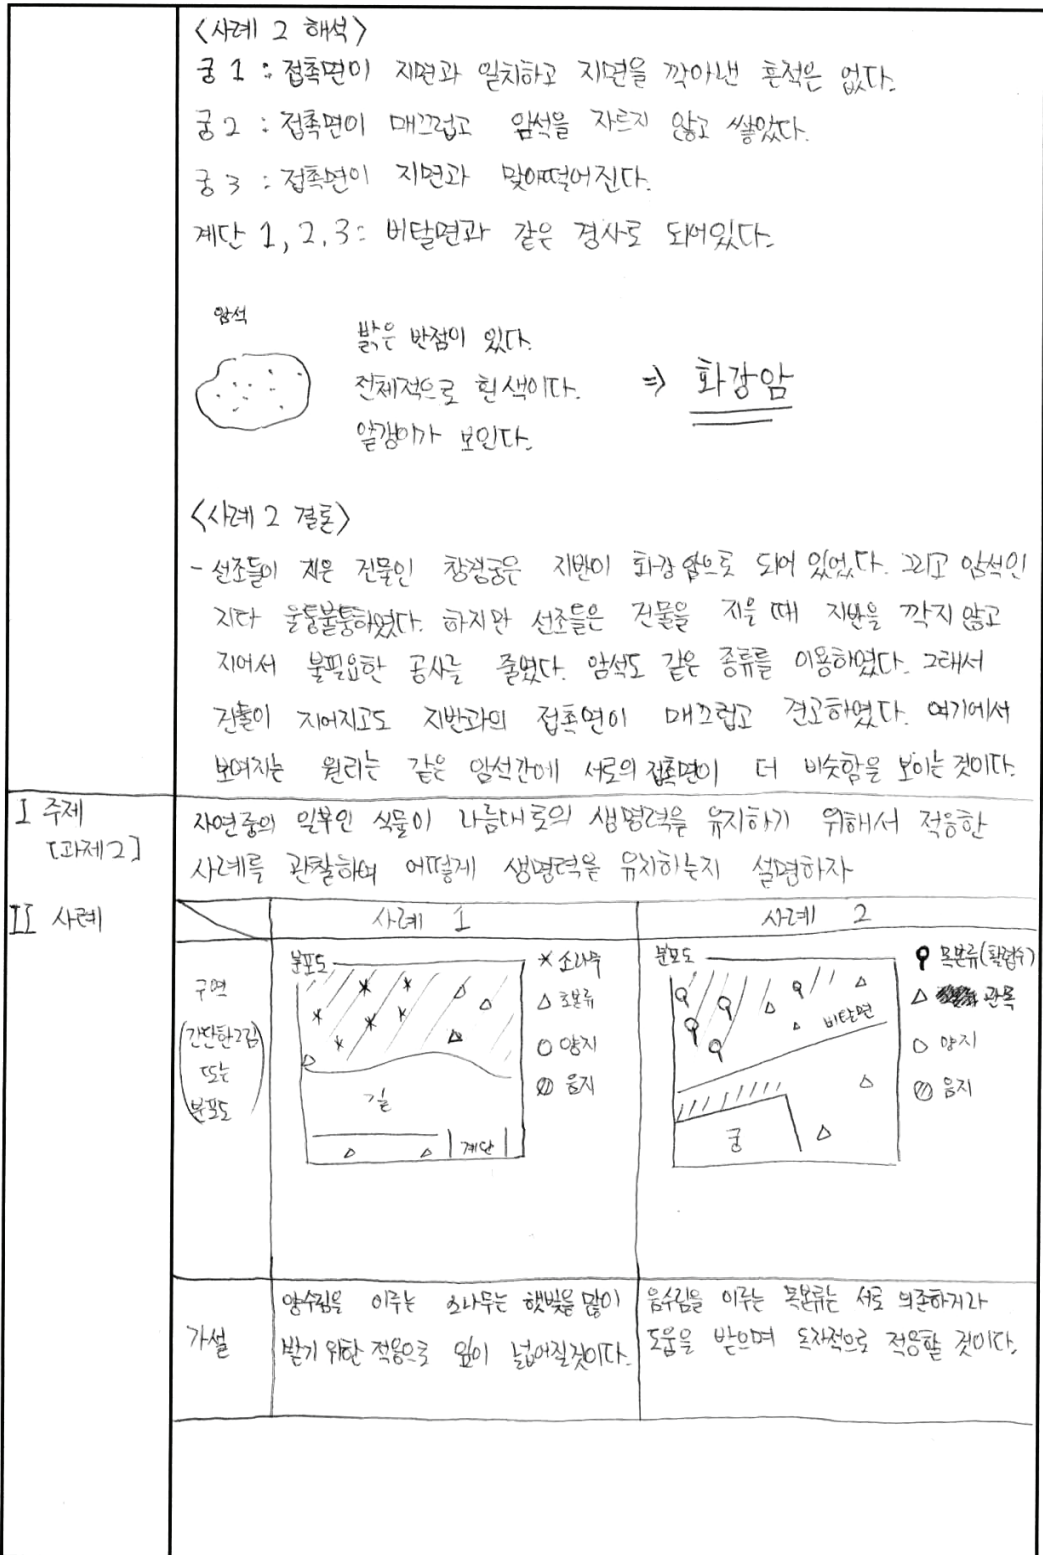 <사례 2 해석>
궁 1 : 접촉면이 지면과 일치하고 지면을 깍아낸 흔적은 없다.
궁 2 : 접촉면이 매끄럽고 암석을 자르지 않고 쌓았다.
궁 3 : 접촉면이 지면과 맞아떡어진다.
계단 1, 2, 3 : 비탈면과 같은 경사로 되어있다.
암석
밝은 반점이 있다.
전체적으로 흰색이다. ⇒ 화강암
알갱이가 보인다.
<사례 2 결론>
- 선조들이 지은 건물인 창경궁은 지반이 화강암으로 되어 있었다. 그리고 암석인
지다 울퉁불퉁하였다. 하지만 선조들은 건물을 지을 때 지반을 깍지 않고
지어서 불필요한 공사를 줄였다. 암석도 같은 종류를 이용하였다. 그래서
건출이 지어지고도 지반과의 접촉면이 매끄럽고 견고하였다. 여기에서
보여지는 원리는 같은 암석간에 서로의 접촉면이 더 비슷함을 보이는 것이다.
I 주제
[과제2]
자연중의 일부인 식물이 나름대로의 생명력을 유지하기 위해서 적응한
사례를 관찰하여 어떻게 생명력을 유지하는지 설명하자
II 사례
사례 1
사례 2
구역
(간단한그림)
또는
분포도
분포도
* 소나무
△ 초본류
○ 양지
음지
길
계단
분포도
목본류(활엽수)
△ 관목
○ 양지
음지
비탈면
궁
가설
양수림을 이루는 소나무는 햇빛을 많이
받기 위한 적응으로 잎이 넓어질것이다.
음수림을 이루는 목본류는 서로 의존하거나
도움을 받으며 독자적으로 적응할 것이다.